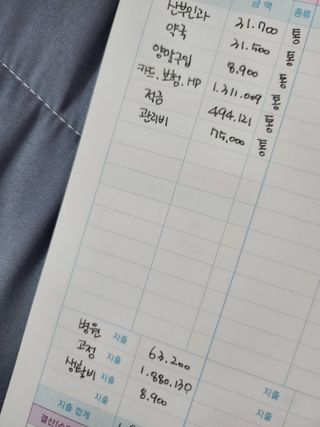 금액 종류
산부인과 31.700 통
약국 31.500 통
양말구입 8.900 통
카드.보험.HP 1.311.009 통
적금 494.121 통
관리비 75.000 통
병원 지출 63.200
고정 지출 1.880.130 지출
생활비 지출 8.900 지출
지출 합계